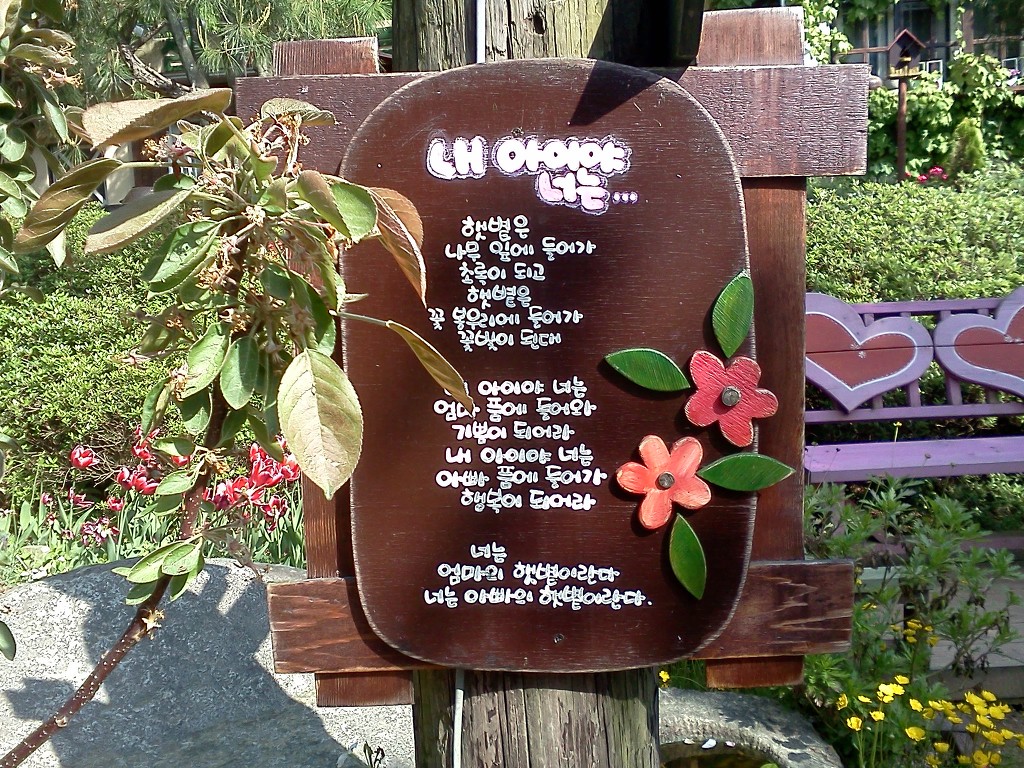 내 아이야
너는...
햇볕은
나무 잎에 들어가
초록이 되고
햇볕은
꽃 봉우리에 들어가
꽃빛이 된대
아이야 너는
엄마 품에 들어와
기쁨이 되어라
내 아이야 너는
아빠 품에 들어가
행복이 되어라
너는
엄마의 햇볕이란다
너는 아빠의 햇볕이란다.